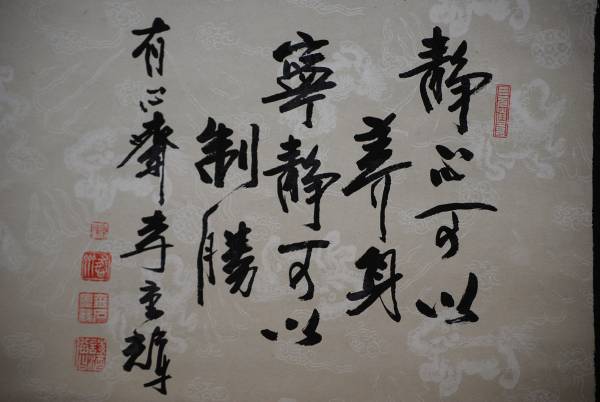 靜心可以
養身
寧靜可以
制勝
有心齋李重輝